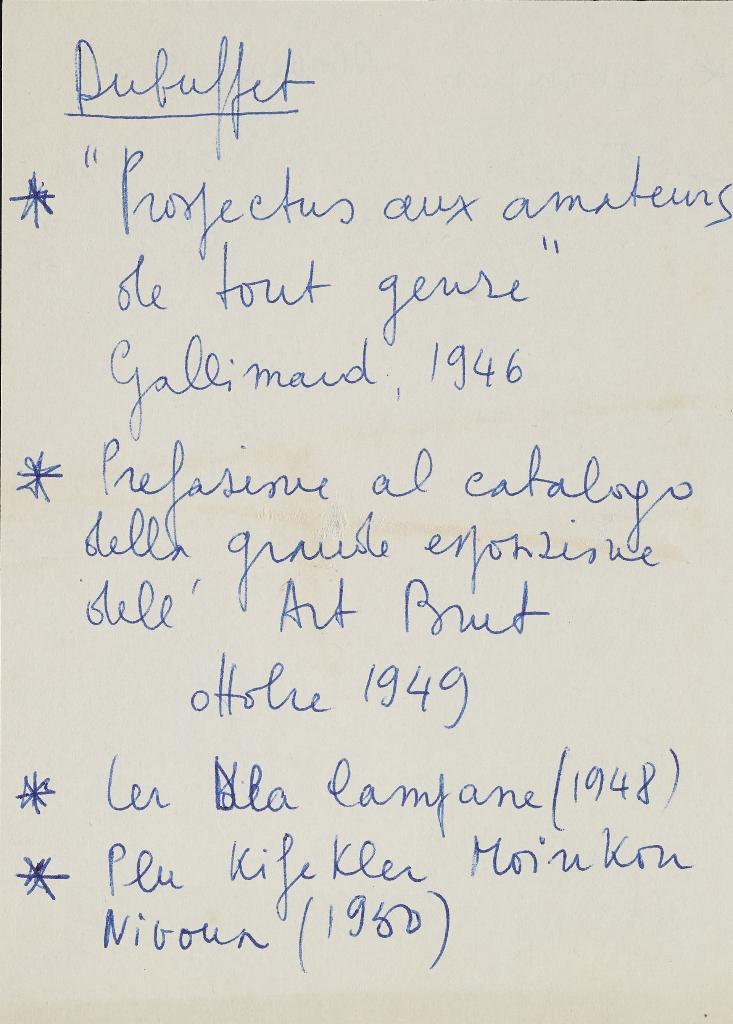 Dubuffet
* "Prospectus aux amateurs
de tout genre"
Gallimard, 1946
* Prefazione al catalogo
della grande esposizione
dell' Art Brut
ottobre 1949
* Ler la campane (1948)
* Plu kifekler Moinkon
Nivoua (1950)